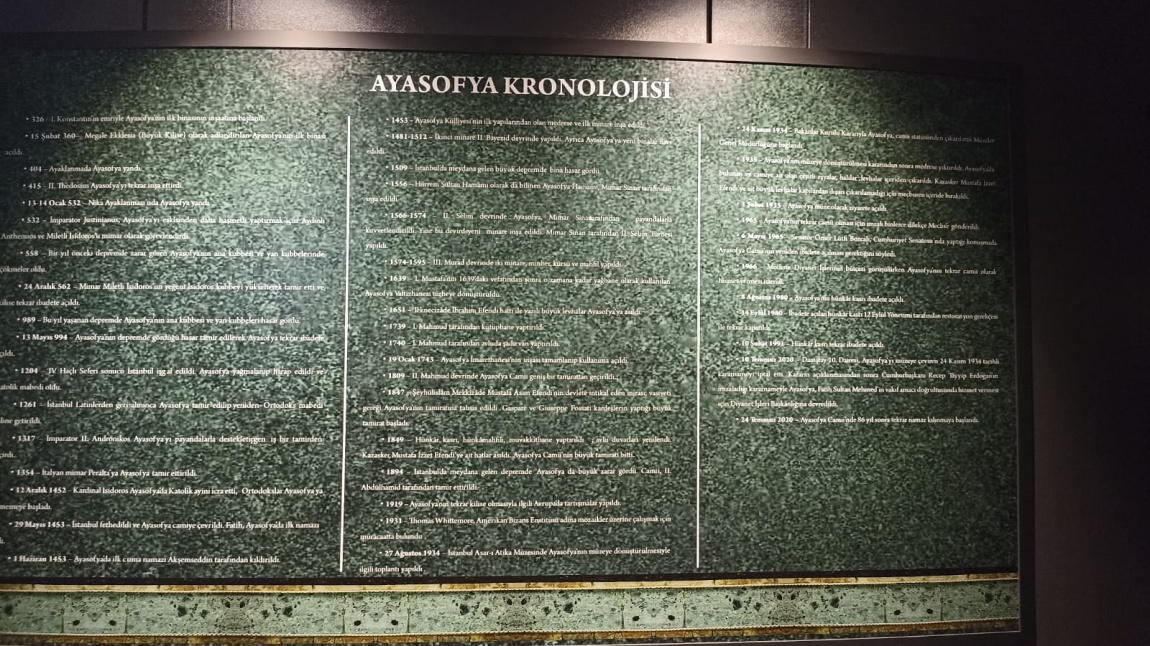 AYASOFYA KRONOLOJİSİ
• 326 – I. Konstantin'in emriyle Ayasofya'nın ilk binasının inşaatına başlandı.
• 15 Şubat 360 – Megale Ekklesia (Büyük Kilise) olarak adlandırılan Ayasofya'nın ilk binası
açıldı.
• 404 – Ayaklanmada Ayasofya yandı.
• 415 – II. Thedosius Ayasofya'yı tekrar inşa ettirdi.
• 13-14 Ocak 532 – Nika Ayaklanması'nda Ayasofya yandı.
• 532 – İmparator Justinianus, Ayasofya'yı eskisinden daha haşmetli yaptırmak için Aydınlı
Anthemios ve Miletli Isidoros'u mimar olarak görevlendirdi.
• 558 – Bir yıl önceki depremde zarar gören Ayasofya'nın ana kubbesi ve yan kubbelerinde
çökmeler oldu.
• 24 Aralık 562 – Mimar Miletli Isidoros'un yeğeni Isidoros kubbeyi yükselterek tamir etti ve
kilise tekrar ibadete açıldı.
• 989 – Bu yıl yaşanan depremde Ayasofya'nın ana kubbesi ve yan kubbeleri hasar gördü.
• 13 Mayıs 994 – Ayasofya'nın depremde gördüğü hasar tamir edilerek Ayasofya tekrar ibadete
çıldı.
• 1204 – IV. Haçlı Seferi sonucu İstanbul işgal edildi. Ayasofya yağmalanıp harap edildi ve
atolik mabedi oldu.
• 1261 – İstanbul Latinlerden geri alınınca Ayasofya tamir edilip yeniden Ortodoks mabedi
line getirildi.
• 1317 – İmparator II. Andronikos Ayasofya'yı payandalarla destekletirken iş bir tamirden
çirdi.
• 1354 – İtalyan mimar Peralta'ya Ayasofya tamir ettirildi.
• 12 Aralık 1452 – Kardinal Isidoros Ayasofya'da Katolik ayini icra etti, Ortodokslar Ayasofya'ya
memeye başladı.
• 29 Mayıs 1453 – İstanbul fethedildi ve Ayasofya camiye çevrildi. Fatih, Ayasofya'da ilk namazı
• 1 Haziran 1453 – Ayasofya'da ilk cuma namazı Akşemseddin tarafından kıldırıldı.
• 1453 – Ayasofya Külliyesi'nin ilk yapılarından olan medrese ve ilk minare inşa edildi.
• 1481-1512 – İkinci minare II. Bayezid devrinde yapıldı. Ayrıca Ayasofya'ya yeni binalar ilave
edildi.
• 1509 – İstanbul'da meydana gelen büyük depremde bina hasar gördü.
• 1556 – Hürrem Sultan Hamamı olarak da bilinen Ayasofya Hamamı, Mimar Sinan tarafından
inşa edildi.
• 1566-1574 – II. Selim devrinde Ayasofya, Mimar Sinan tarafından payandalarla
kuvvetlendirildi. Yine bu devirde yeni minare inşa edildi. Mimar Sinan tarafından II. Selim Türbesi
yapıldı.
• 1574-1595 – III. Murad devrinde iki minare, minber, kürsü ve mahfil yapıldı.
• 1639 – I. Mustafa'nın 1639'daki vefatından sonra o zamana kadar yağhane olarak kullanılan
Ayasofya Vaftizhanesi türbeye dönüştürüldü.
• 1651 – Teknecizade İbrahim Efendi hattı ile yazılı büyük levhalar Ayasofya'ya asıldı.
• 1739 – I. Mahmud tarafından kütüphane yaptırıldı.
• 1740 – I. Mahmud tarafından avluda şadırvan yaptırıldı.
• 19 Ocak 1743 – Ayasofya İmarethanesi'nin inşası tamamlanıp kullanıma açıldı.
• 1809 – II. Mahmud devrinde Ayasofya Camii geniş bir tamirattan geçirildi.
• 1847 – Şeyhülislâm Mekkizâde Mustafa Asım Efendi'nin devlete intikal eden mirası, vasiyeti
gereği Ayasofya'nın tamiratına tahsis edildi. Gaspare ve Giuseppe Fossati kardeşlerin yaptığı büyük
tamirat başladı.
• 1849 – Hünkâr kasrı, hünkâr mahfili, muvakkithane yaptırıldı avlu duvarları yenilendi.
Kazasker Mustafa İzzet Efendi'ye ait hatlar asıldı. Ayasofya Camii'nin büyük tamiratı bitti.
• 1894 – İstanbul'da meydana gelen depremde Ayasofya da büyük zarar gördü. Camii, II.
Abdülhamid tarafından tamir ettirildi.
• 1919 – Ayasofya'nın tekrar kilise olmasıyla ilgili Avrupa'da tartışmalar yapıldı.
• 1931 – Thomas Whittemore, Amerikan Bizans Enstitüsü adına mozaikler üzerine çalışmak için
müracaatta bulundu
• 27 Ağustos 1934 – İstanbul Asar-ı Atika Müzesinde Ayasofya'nın müzeye dönüştürülmesiyle
ilgili toplantı yapıldı.
• 24 Kasım 1934 – Bakanlar Kurulu Kararıyla Ayasofya, cami statüsünden çıkarılarak Müzeler
Genel Müdürlüğüne bağlandı.
• 1935 – Ayasofya'nın müzeye dönüştürülmesi kararından sonra medrese yıktırıldı. Ayasofya'da
bulunan ve camiye ait olan çeşitli eşyalar, halılar, levhalar içeriden çıkarıldı. Kazasker Mustafa İzzet
Efendi'ye ait büyük levhalar kapılardan dışarı çıkarılamadığı için mecburen içeride bırakıldı.
• 1 Şubat 1935 – Ayasofya müze olarak ziyarete açıldı.
• 1965 – Ayasofya'nın tekrar camii olması için imzalı binlerce dilekçe Meclise gönderildi.
• 6 Mayıs 1965 – Senatör Ömer Lütfi Bozcalı, Cumhuriyet Senatosu'nda yaptığı konuşmada
Ayasofya Camii'nin yeniden ibadete açılması gerektiğini söyledi.
• 1966 – Mecliste Diyanet İşlerinin bütçesi görüşülürken Ayasofya'nın tekrar camii olarak
hizmet vermesi istendi.
• 8 Ağustos 1980 – Ayasofya'nın hünkâr kasrı ibadete açıldı.
• 14 Eylül 1980 – İbadete açılan hünkâr kasrı 12 Eylül Yönetimi tarafından restorasyon gerekçesi
ile tekrar kapatıldı.
• 10 Şubat 1991 – Hünkâr kasrı tekrar ibadete açıldı.
• 10 Temmuz 2020 – Danıştay 10. Dairesi, Ayasofya'yı müzeye çeviren 24 Kasım 1934 tarihli
kararnameyi iptal etti. Kararın açıklanmasından sonra Cumhurbaşkanı Recep Tayyip Erdoğan'ın
imzaladığı kararnameyle Ayasofya, Fatih Sultan Mehmed'in vakıf amacı doğrultusunda hizmet vermesi
için Diyanet İşleri Başkanlığına devredildi.
• 24 Temmuz 2020 – Ayasofya Camii'nde 86 yıl sonra tekrar namaz kılınmaya başlandı.